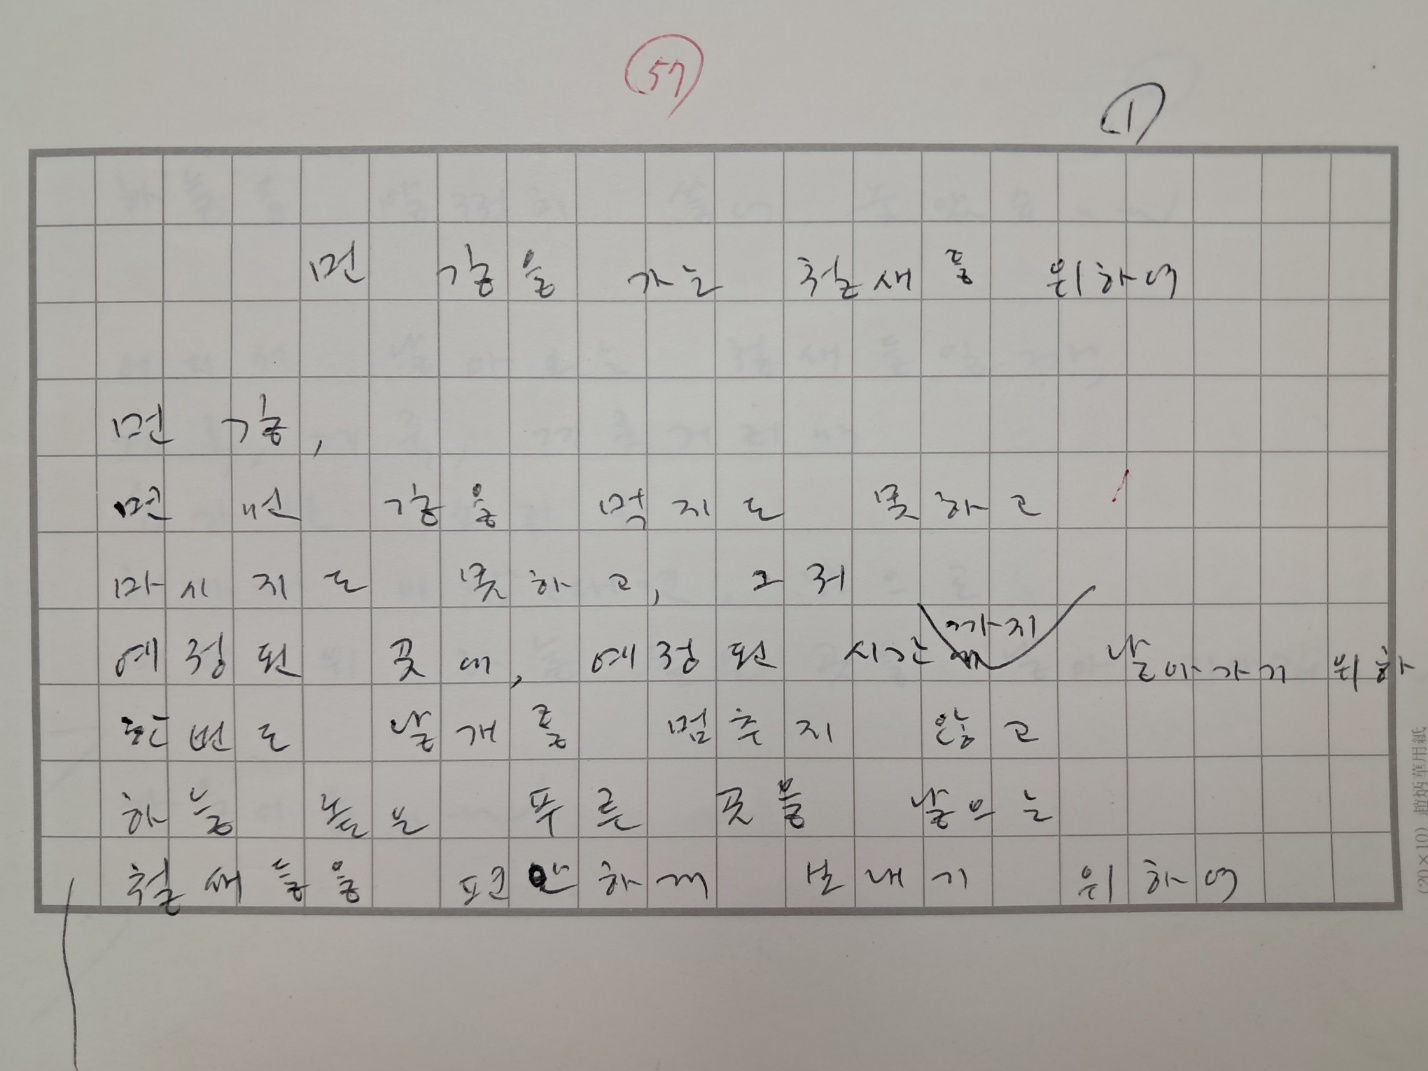 57
1
먼 길을 가는 철새를 위하여
먼 길,
먼 먼 길을 먹지도 못하고
마시지도 못하고, 그저
예정된 곳에, 예정된 시간까지 날아가기 위하
한번도 날개를 멈추지 않고
하늘 높은 푸른 곳을 날으는
철새들을 편안하게 보내기 위하여
(20×10) 趙炳華用紙